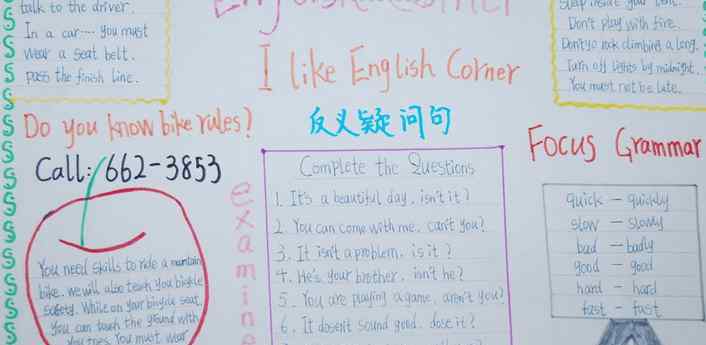 talk to the driver.
In a car---- you must
wear a seat belt.
pass the finish line.
I like English Corner
Don't play with fire.
Turn off lights by midnight.
You must not be late.
Do you know bike rules?
Call: 662-3853
You need skills to ride a mountain
bike. we will also teach you bicycle
safety. While on your bicycle seat.
you can touch the ground with
You must wear
反义疑问句
Complete the Questions
1. It's a beautiful day, isn't it?
2. You can come with me, can't you?
3. It isn't a problem, is it?
4. He's your brother, isn't he?
5. You are playing a game, aren't you?
6. It dosen't sound good, dose it?
examine
Focus Grammar
quick — quickly
slow — slowly
bad — badly
good — good
hard — hard
fast — fast